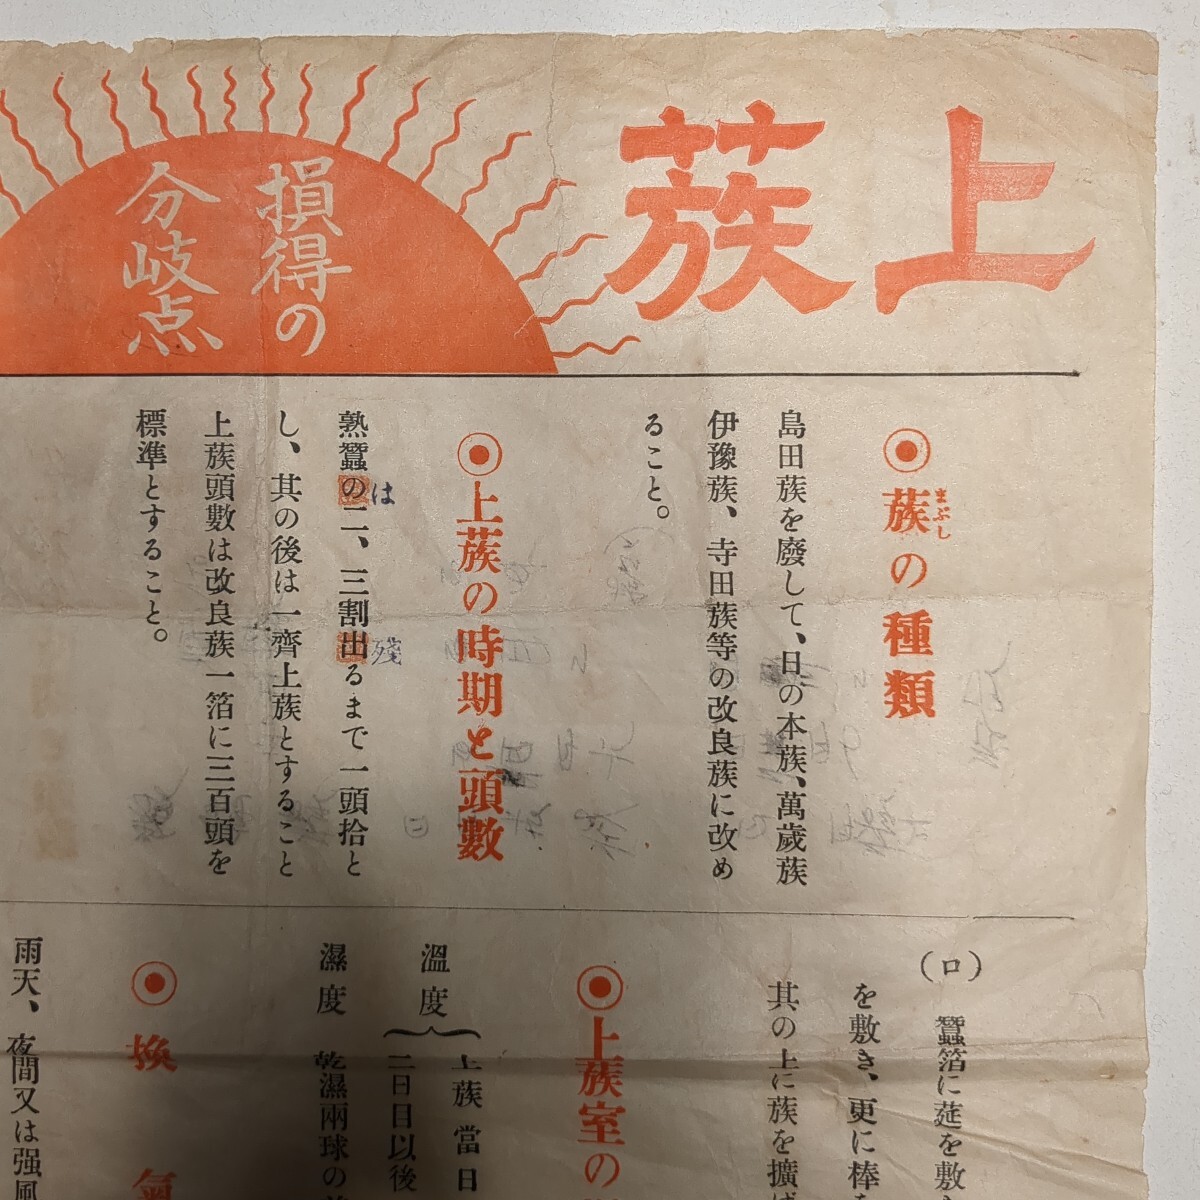 上蔟
損得の
分岐点
◉蔟の種類
まぶし
島田蔟を廢して、日の本蔟、萬歲蔟
伊豫蔟、寺田蔟等の改良蔟に改め
ること。
◉上蔟の時期と頭數
熟蠶の二、三割出るまで一頭拾と
は
殘
し、其の後は一齊上蔟とすること
上蔟頭數は改良蔟一箔に三百頭を
標準とすること。
(ロ)
蠶箔に莚を敷
を敷き、更に棒を
其の上に蔟を擴げ
◉上蔟室の
溫度
上蔟當日
二日目以後
濕度 乾濕兩球の
◉換氣
雨天、夜間又は强風